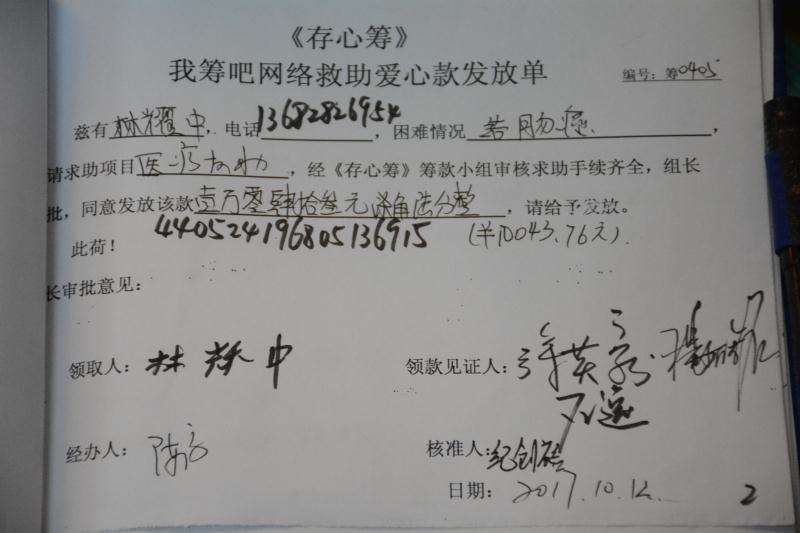 《存心筹》
我筹吧网络救助爱心款发放单
编号：筹0405
兹有林耀中，电话13682826954，困难情况 肠癌，
请求助项目医疗救助，经《存心筹》筹款小组审核求助手续齐全，组长
批，同意发放该款壹万零肆拾叁元柒角陆分整，请给予发放。
此荷！ 440524196805136915 （¥10043.76元）.
长审批意见：
领取人：林耀中 领款见证人：
经办人： 核准人：纪创
日期：2017.10.12 2